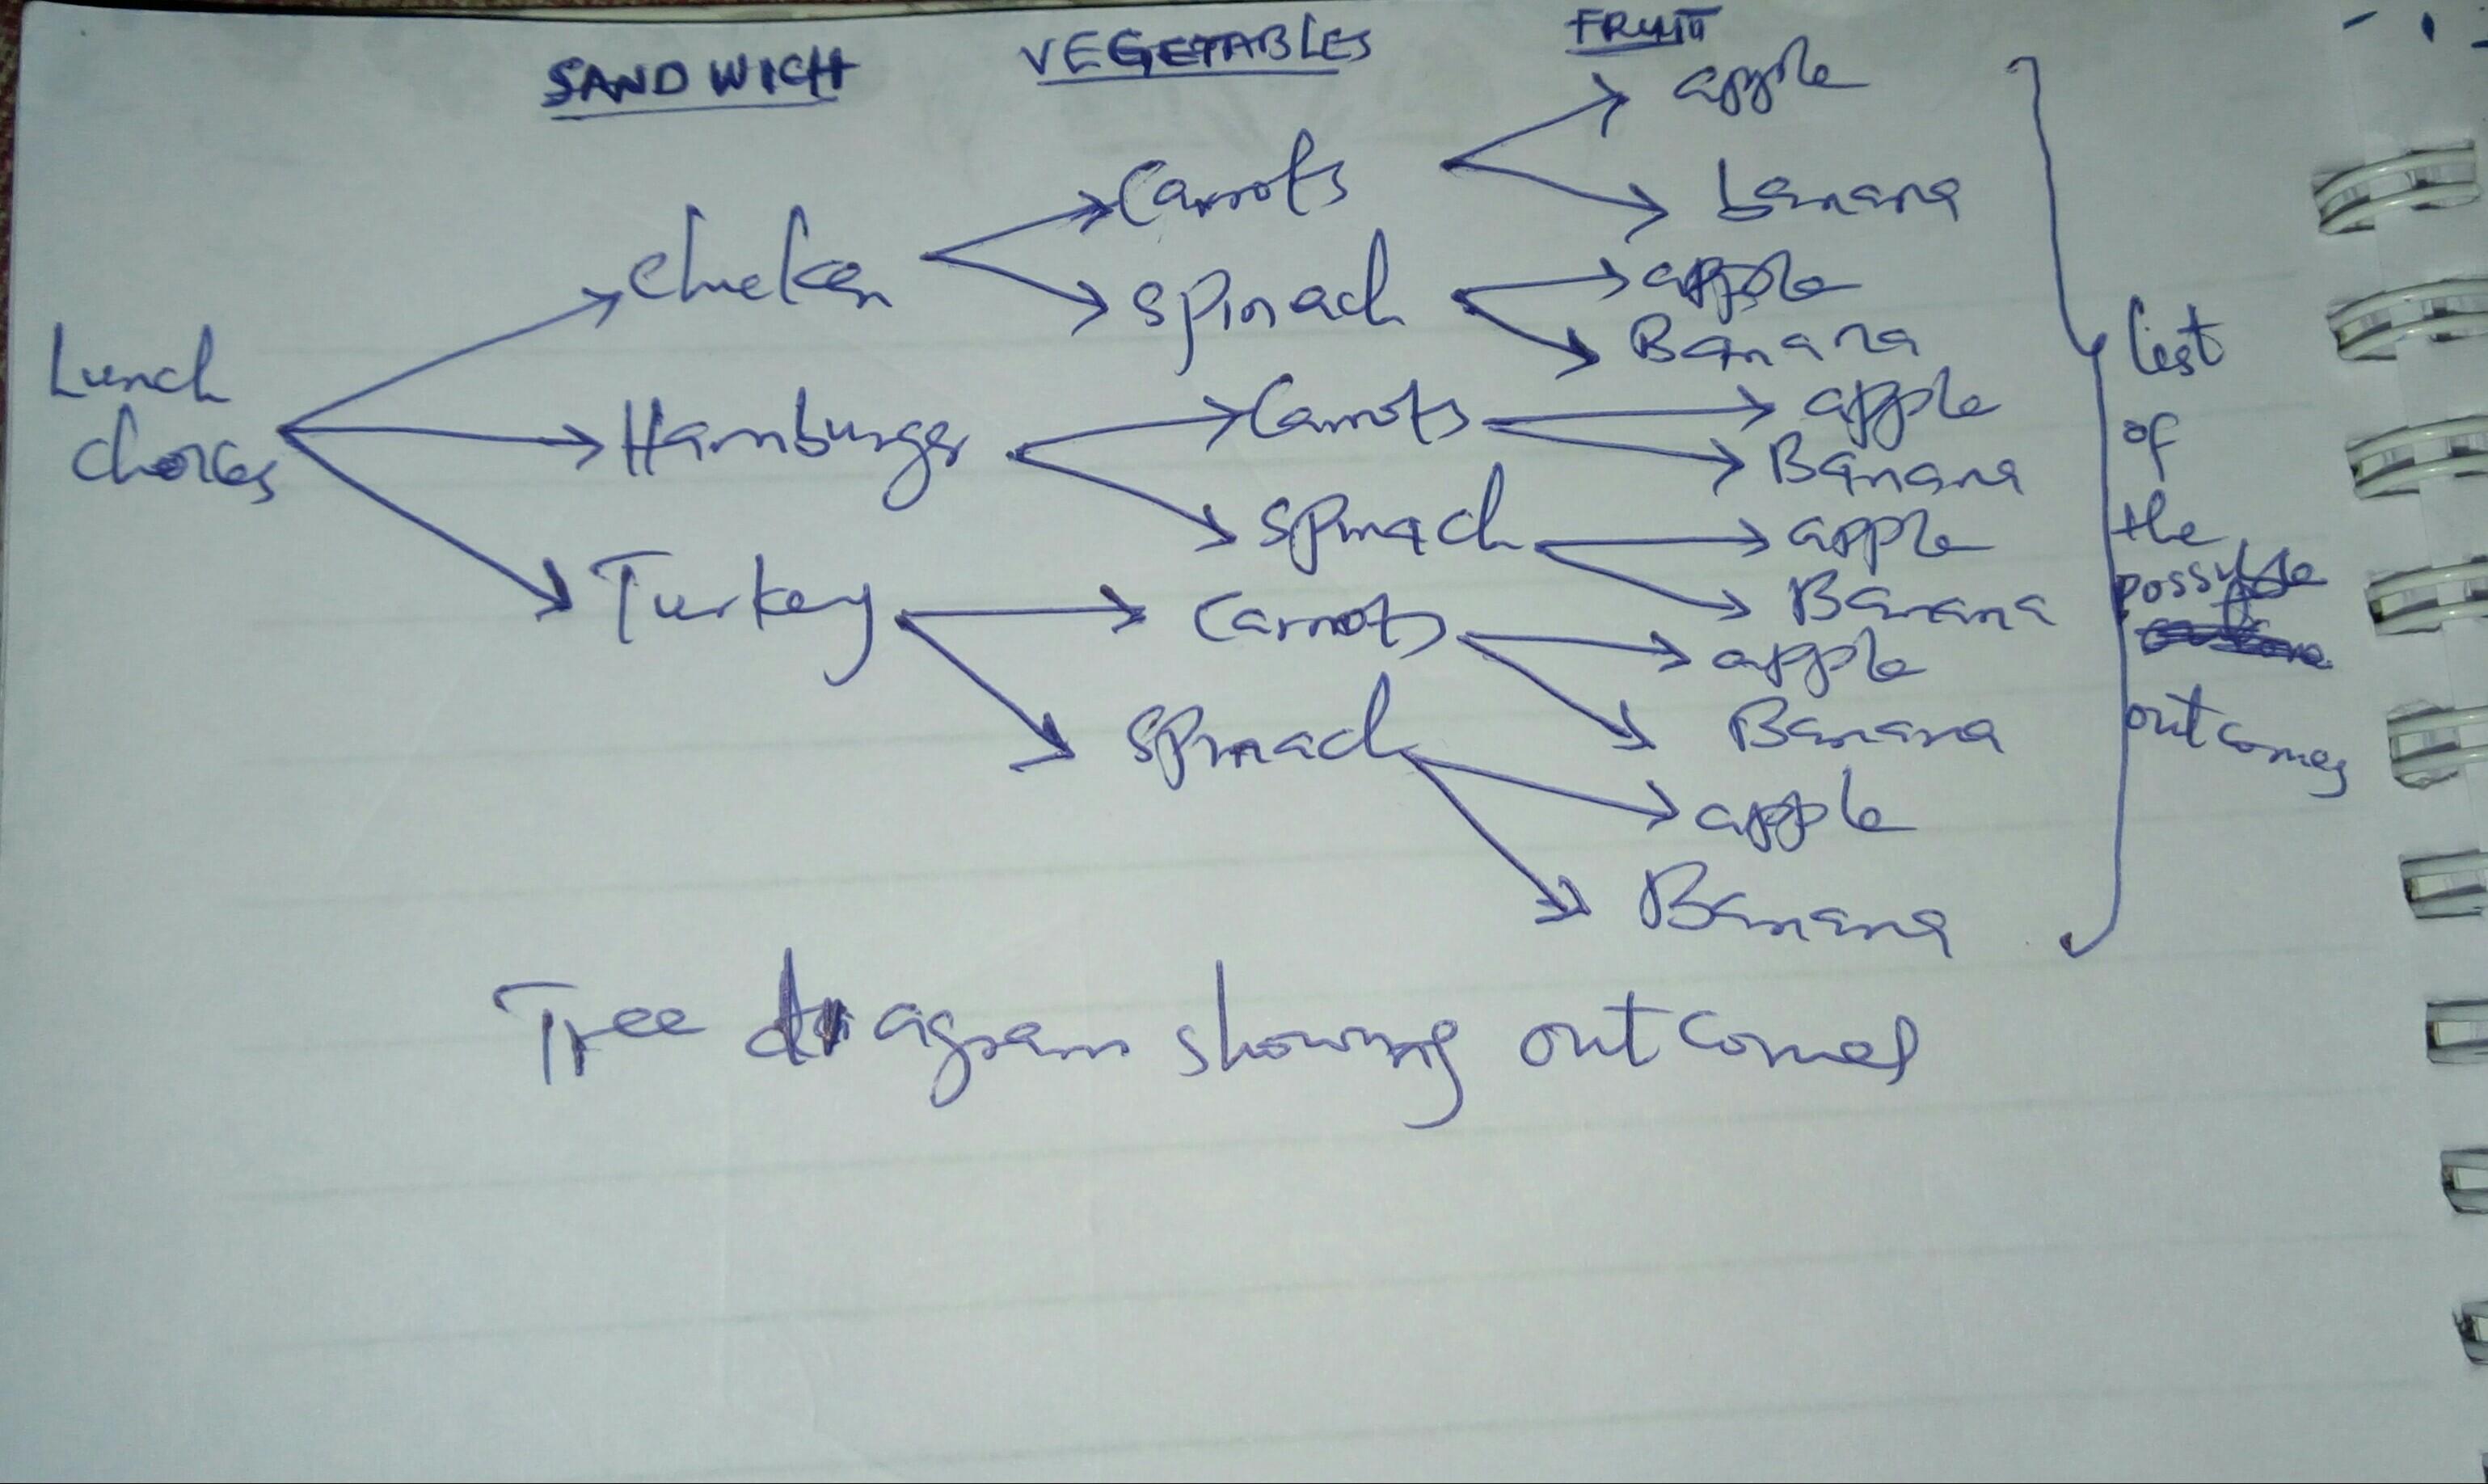 SANDWICH VEGETABLES FRUIT
apple
Carrots
banana
chicken
apple
spinach
Banana
Lunch
choices
Carrots
apple
Hamburger
Banana
spinach
apple
Banana
Turkey
Carrots
apple
Banana
spinach
apple
Banana
list
of
the
possible
outcomes
Tree diagram showing outcomes